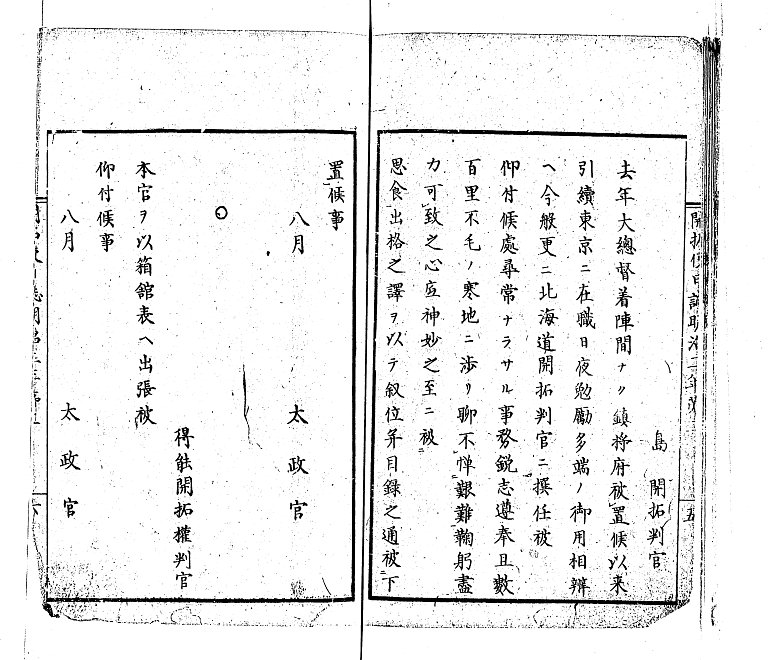 島開拓判官
去年大總督着陣間ナク鎮将府被置候以来
引續東京ニ在職日夜勉勵多端ノ御用相辨
ヘ今般更ニ北海道開拓判官ニ撰任被
仰付候處尋常ナラサル事務鋭志遵奉且數
百里不毛ノ寒地ニ渉リ聊不憚艱難鞠躬盡
力可致之心庭神妙之至ニ被
思食出格之譯ヲ以テ叙位并目録之通被下
五
置候事
八月太政官
○
得能開拓權判官
本官ヲ以箱館表ヘ出張被
仰付候事
八月太政官
六